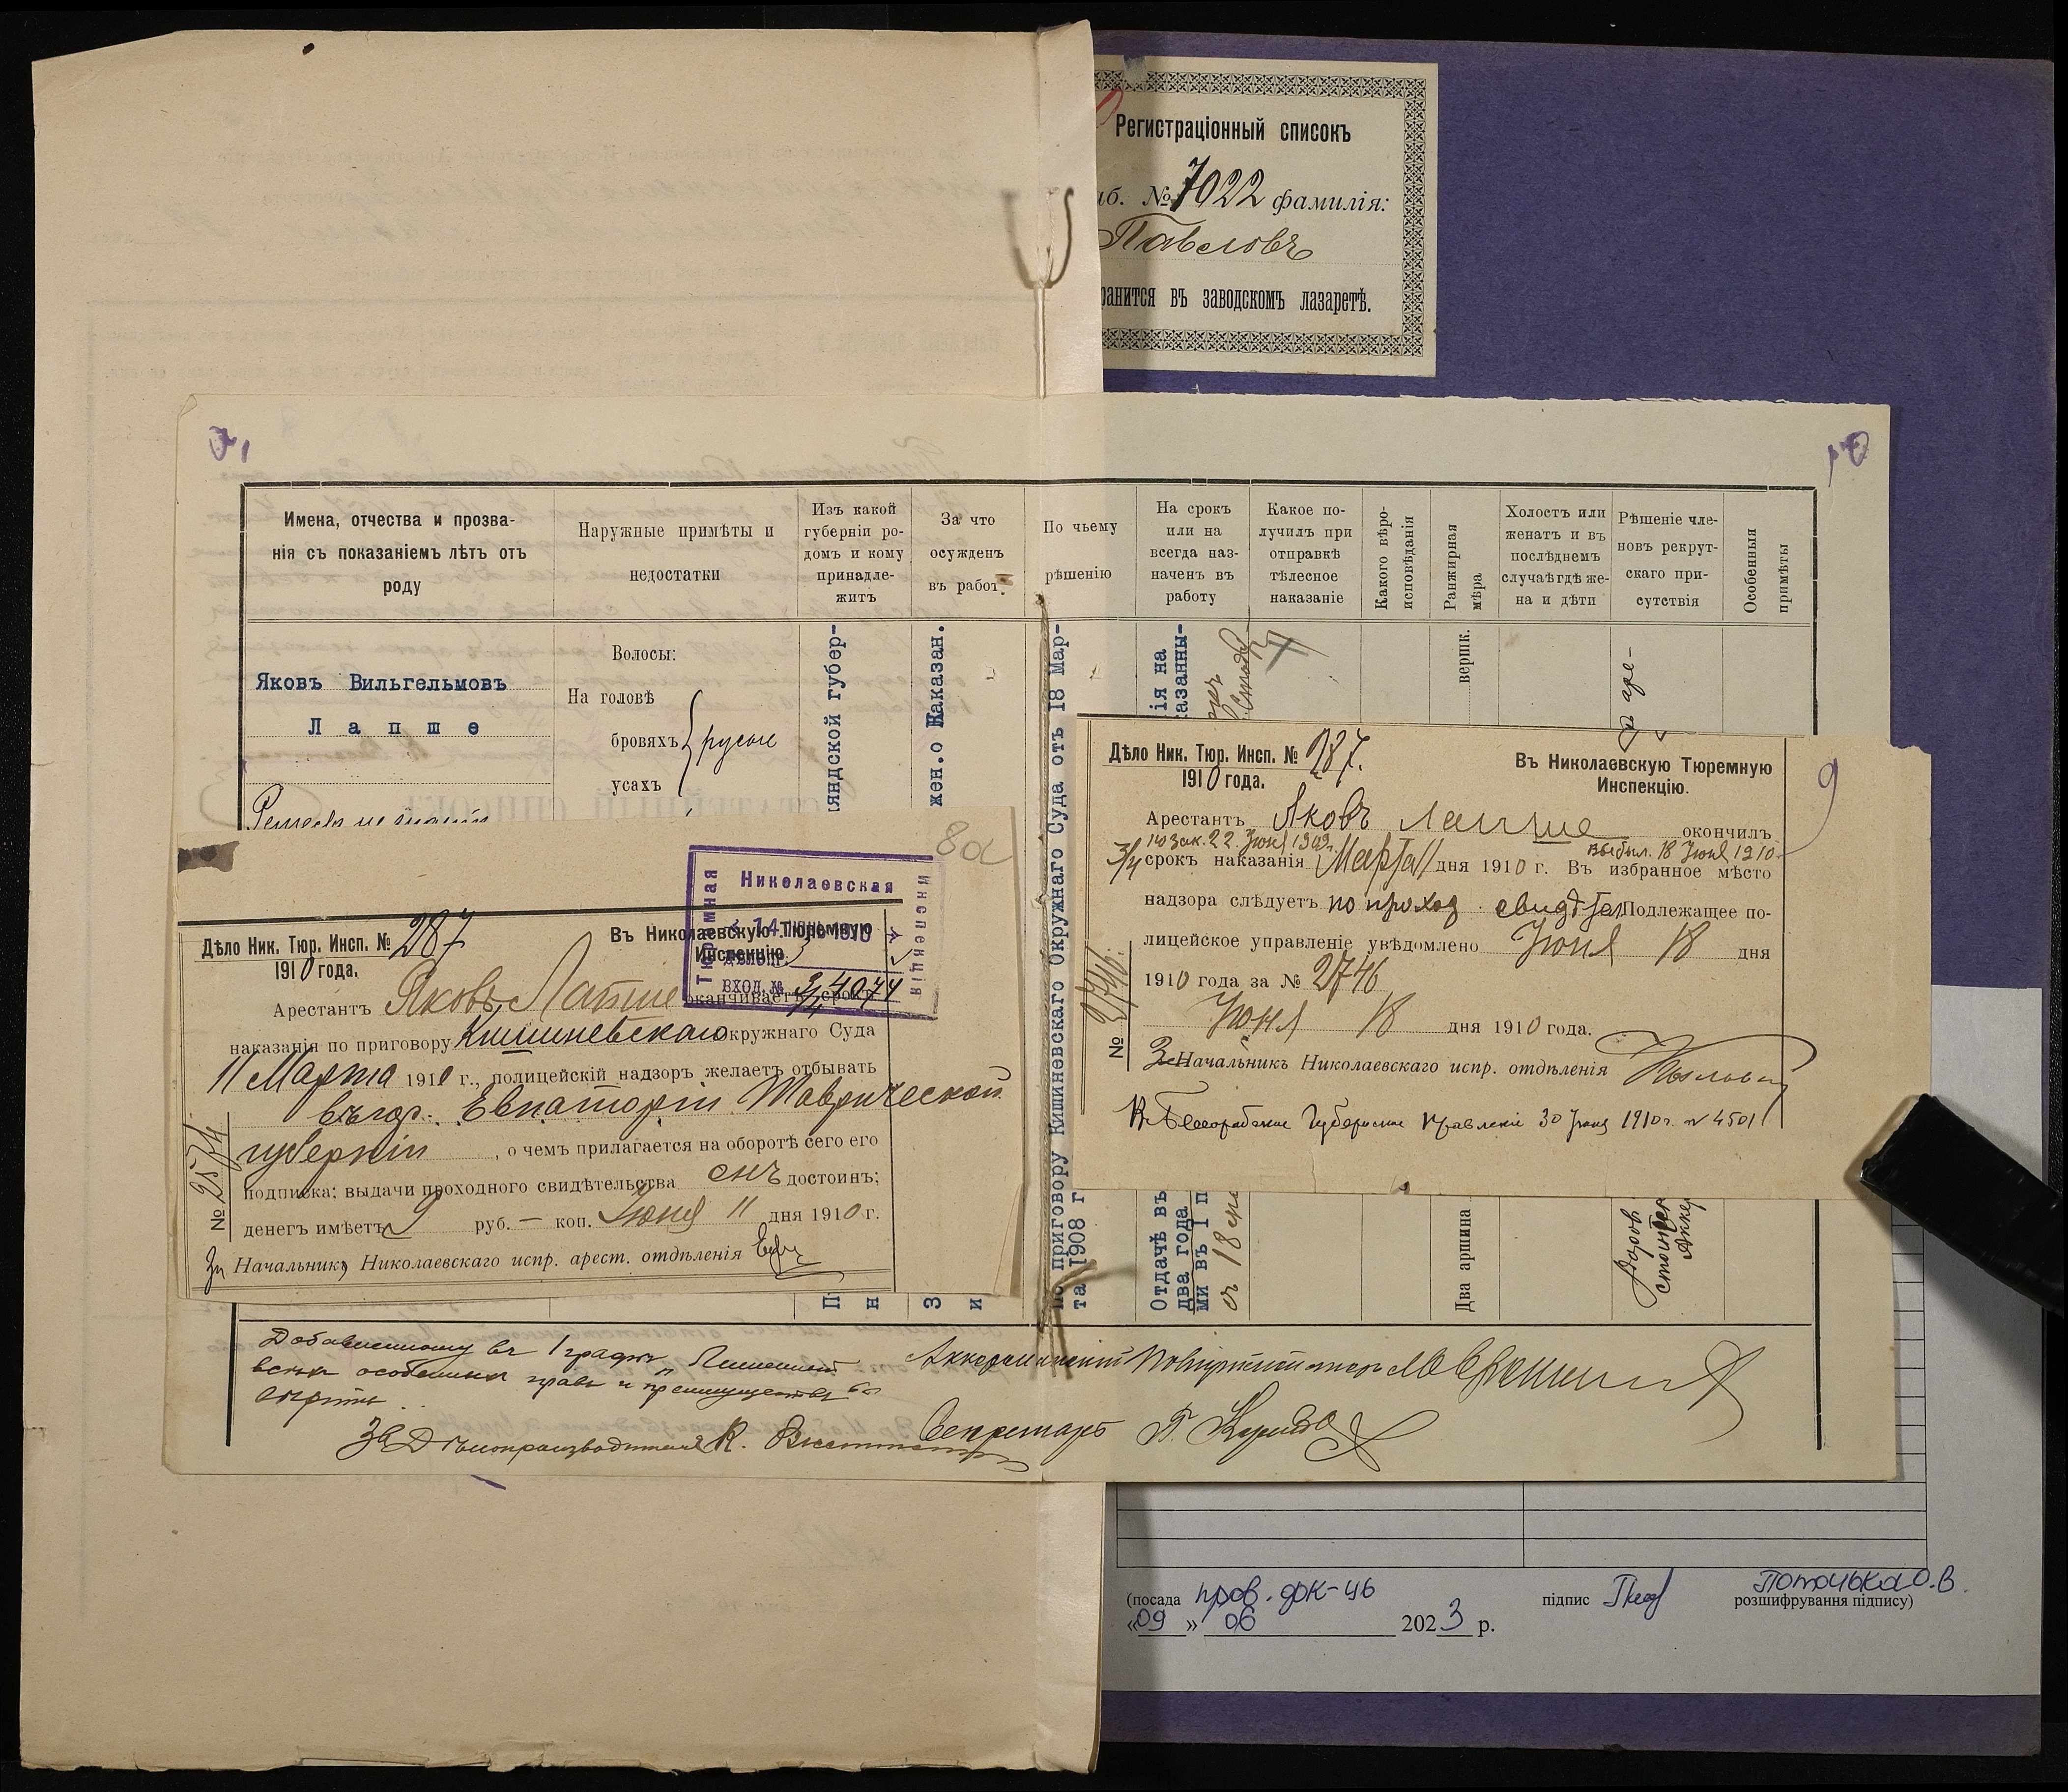 Регистраціонный списокъ
аб. № 7022 фамилія:
Павловъ
ранится въ заводскомъ лазаретѣ.
Имена, отчества и прозва-
нія съ показаніемъ лѣтъ отъ
роду
Наружные примѣты и
недостатки
Изъ какой
губерніи ро-
домъ и кому
принадле-
житъ
За что
осужденъ
въ работ.
По чьему
рѣшенію
На срокъ
или на
всегда наз-
наченъ въ
работу
Какое по-
лучилъ при
отправкѣ
тѣлесное
наказаніе
Какого вѣро-
исповѣданія
Ранжирная
мѣра
Холостъ или
женатъ и въ
послѣднемъ
случаѣ гдѣ же-
на и дѣти
Рѣшеніе чле-
новъ рекрут-
скаго при-
сутствія
Особенныя
примѣты
Яковъ Вильгельмовъ
Лапше
Волосы:
На головѣ
бровяхъ
усахъ
русые
яндской губер-
жен.о Наказан.
По приговору Кишиневскаго Окружнаго Суда отъ 18 Мар-
та 1908 г
ія на
казанны-
Отдачѣ въ
два года
ми въ I п
вершк.
Два аршина
8а
Николаевская
Тюремная
Инспекція
14 1910
ВХОД. № 4074
Дѣло Ник. Тюр. Инсп. № 287
1910 года.
Въ Николаевскую Тюремную
Инспекцію
Арестантъ Яковъ Лапше оканчиваетъ срокъ
наказанія по приговору Кишиневскаго окружнаго Суда
11 Марта 1910 г., полицейскій надзоръ желаетъ отбывать
въ гор. Евпаторіи Таврической
губерніи, о чемъ прилагается на оборотѣ сего его
подписка; выдачи проходного свидѣтельства онъ достоинъ;
денегъ имѣетъ 9 руб. — коп. Іюня 11 дня 1910 г.
№ 2574
За Начальникъ Николаевскаго испр. арест. отдѣленія
9
Дѣло Ник. Тюр. Инсп. № 287.
1910 года.
Въ Николаевскую Тюремную
Инспекцію.
Арестантъ Яковъ Лапше окончилъ
22 Іюня 1909 выбыл. 18 Іюня 1910
срокъ наказанія Марта 11 дня 1910 г. Въ избранное мѣсто
надзора слѣдуетъ по проход. свидѣт. Подлежащее по-
лицейское управленіе увѣдомлено Іюня 18 дня
1910 года за № 2746
Іюня 18 дня 1910 года.
№ 2746
Начальникъ Николаевскаго испр. отдѣленія
Губернское Правленіе 30 Іюня 1910 г. № 4501
П
н
З
и
Добавленному въ 1 графѣ
всѣхъ особенныхъ правъ и преимуществъ
Секретарь
К.
(посада пров. док-ів
підпис
Поточька О.В.
розшифрування підпису)
«09» 06 2023 р.